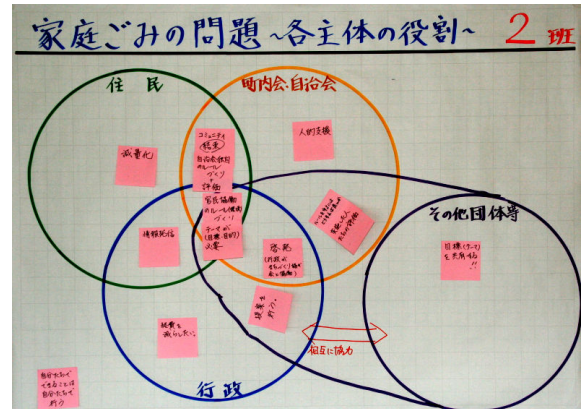 家庭ごみの問題~各主体の役割~ 2班
住民
町内会・自治会
コミュニティ
結束
自治会独自
のルール
づくり
評価
人的支援
減量化
官民協働
のルール(条例)
づくり
テーマが
(目標・目的)
必要
情報発信
啓発
(行政が
その他団体等
目標(テーマ)
を共有する
!!
提案を
行う。
経費を
減らしたい。
相互に協力
行政
自分たちで
できることは
自分たちで
行う